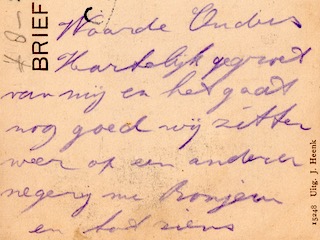 BRIEF
Waarde Ouders
Hartelijk gegroet
van mij en het gaat
nog goed wij zitter
weer op een anderer
negerij nu Bonjeur
en tot ziens
15248 Uitg. J. Heenk